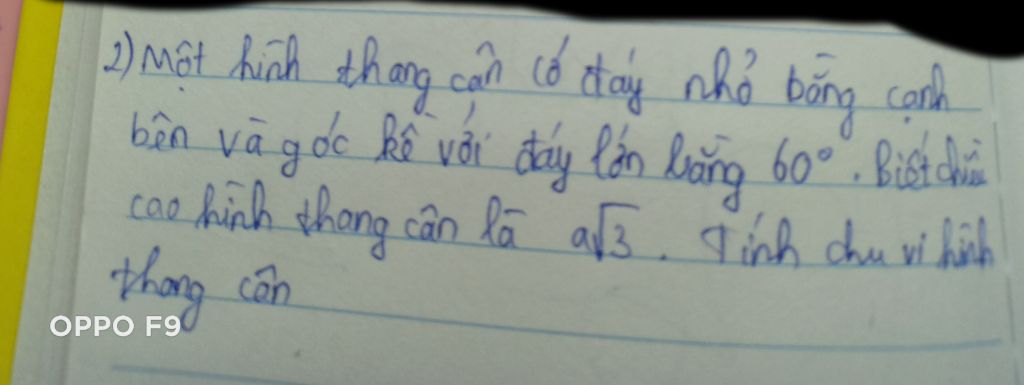 2) Một hình thang cân có đáy nhỏ bằng cạnh
bên và góc kề với đáy lớn bằng 60°. Biết chiều
cao hình thang cân là a√3. Tính chu vi hình
thang cân
OPPO F9